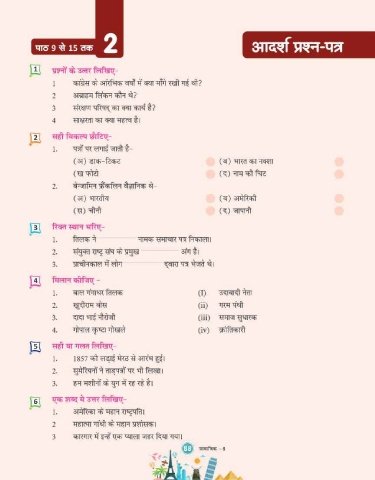 पाठ 9 से 15 तक 2 आदर्श प्रश्न-पत्र
1 प्रश्नों के उत्तर लिखिए-
1 कांग्रेस के आरंभिक वर्षों में क्या माँगें रखी गई थी?
2 अब्राहम लिंकन कौन थे?
3 संरक्षण परिषद् का क्या कार्य है?
4 साक्षरता का क्या महत्त्व है।
2 सही विकल्प छाँटिए-
1. पत्रों पर लगाई जाती है-
(अ) डाक-टिकट (ब) भारत का नक्शा
(स) फोटो (द) नाम की चिट
2. बेन्जामिन फ्रैंकलिन वैज्ञानिक थे-
(अ) भारतीय (ब) अमेरिकी
(स) चीनी (द) जापानी
3 रिक्त स्थान भरिए-
1. तिलक ने नामक समाचार पत्र निकाला।
2. संयुक्त राष्ट्र संघ के प्रमुख अंग हैं।
3. प्राचीनकाल में लोग द्वारा पत्र भेजते थे।
4 मिलान कीजिए -
1. बाल गंगाधर तिलक (I) उदावादी नेता
2. खुदीराम बोस (ii) गरम पंथी
3. दादा भाई नौरोजी (iii) समाज सुधारक
4. गोपाल कृष्ण गोखले (iv) क्रांतिकारी
5 सही या गलत लिखिए-
1. 1857 की लड़ाई मेरठ से आरंभ हुई।
2. सुमेरियनों ने ताड़पत्रों पर भी लिखा।
3. हम मशीनों के युग में रह रहे हैं।
6 एक शब्द में उत्तर लिखिए-
1. अमेरिका के महान राष्ट्रपति।
2 महात्मा गांधी के महान प्रशंसक।
3 कारागार में इन्हें एक प्याला जहर दिया गया।
68 सामाजिक -8